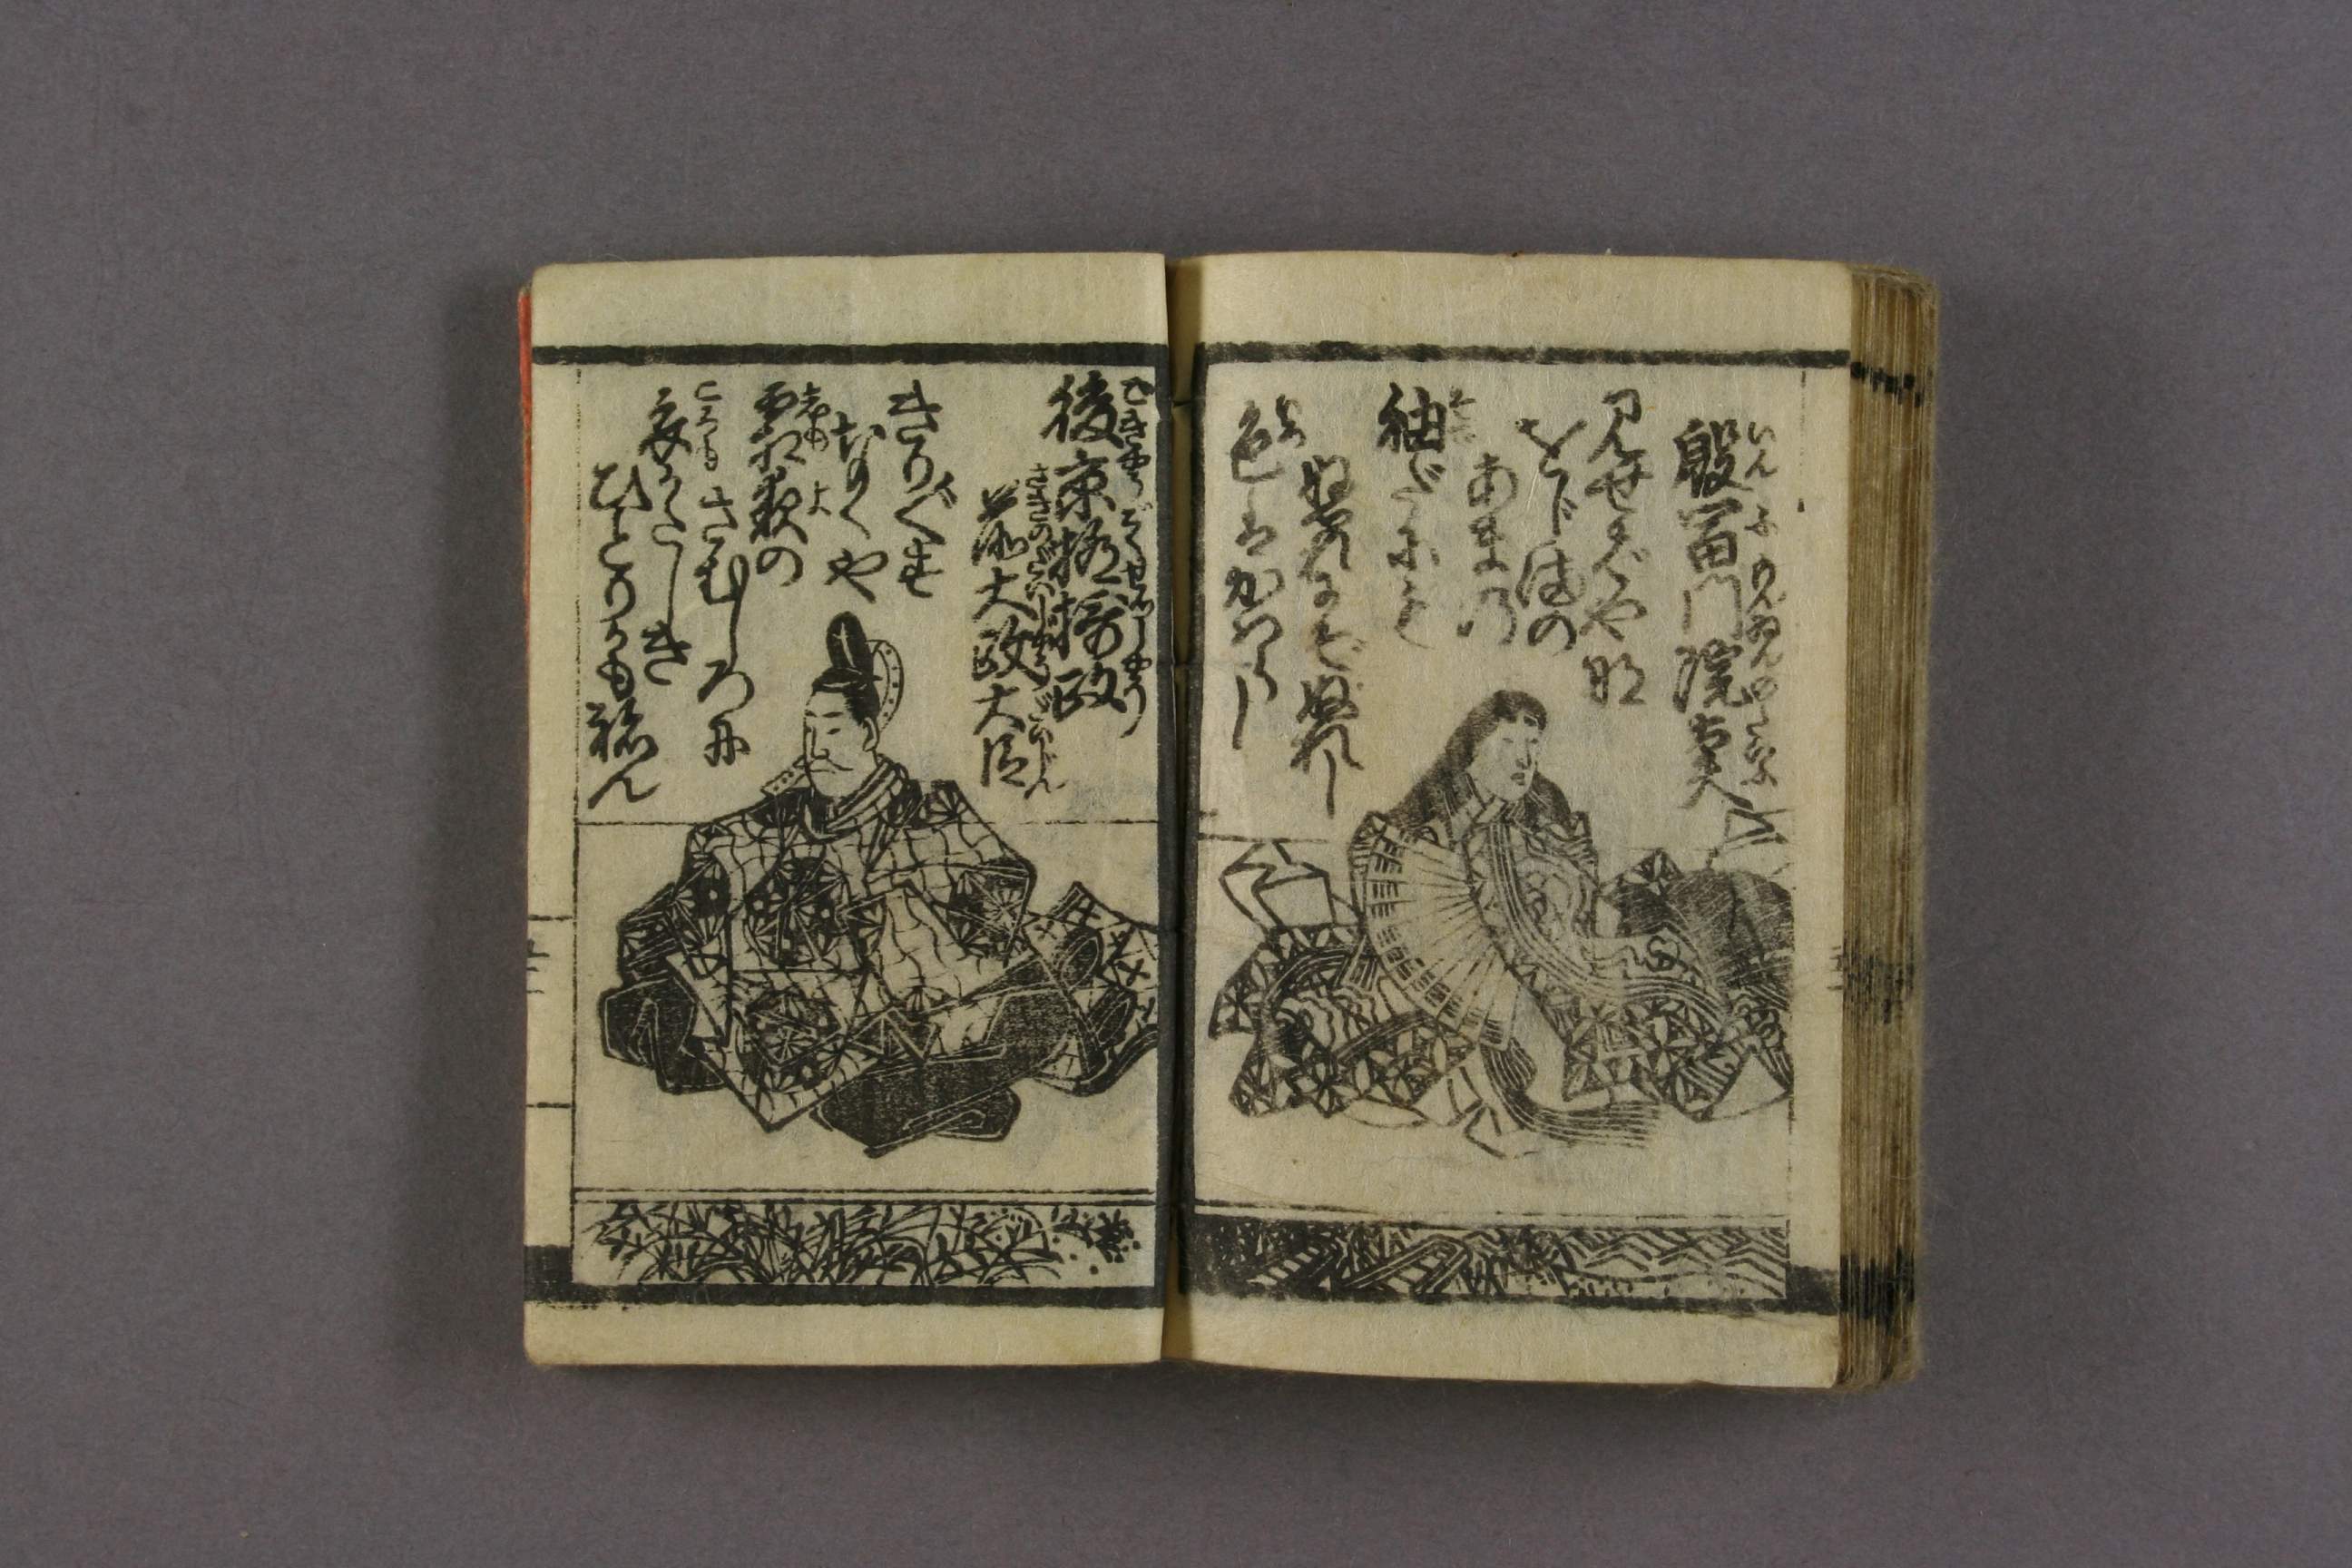 殷富門院大夫
いんふもんゐんのたいふ
見せばやな
をじまの
あまの
袖だにも
そで
ぬれにぞぬれし
色はかはらじ
いろ
後京極摂政
ごきやうごくせつしやう
前太政大臣
さきのだいじやうだいじん
きり〴〵す
なくや
霜夜の
しもよ
さむしろに
衣かたしき
ころも
ひとりかも祢ん